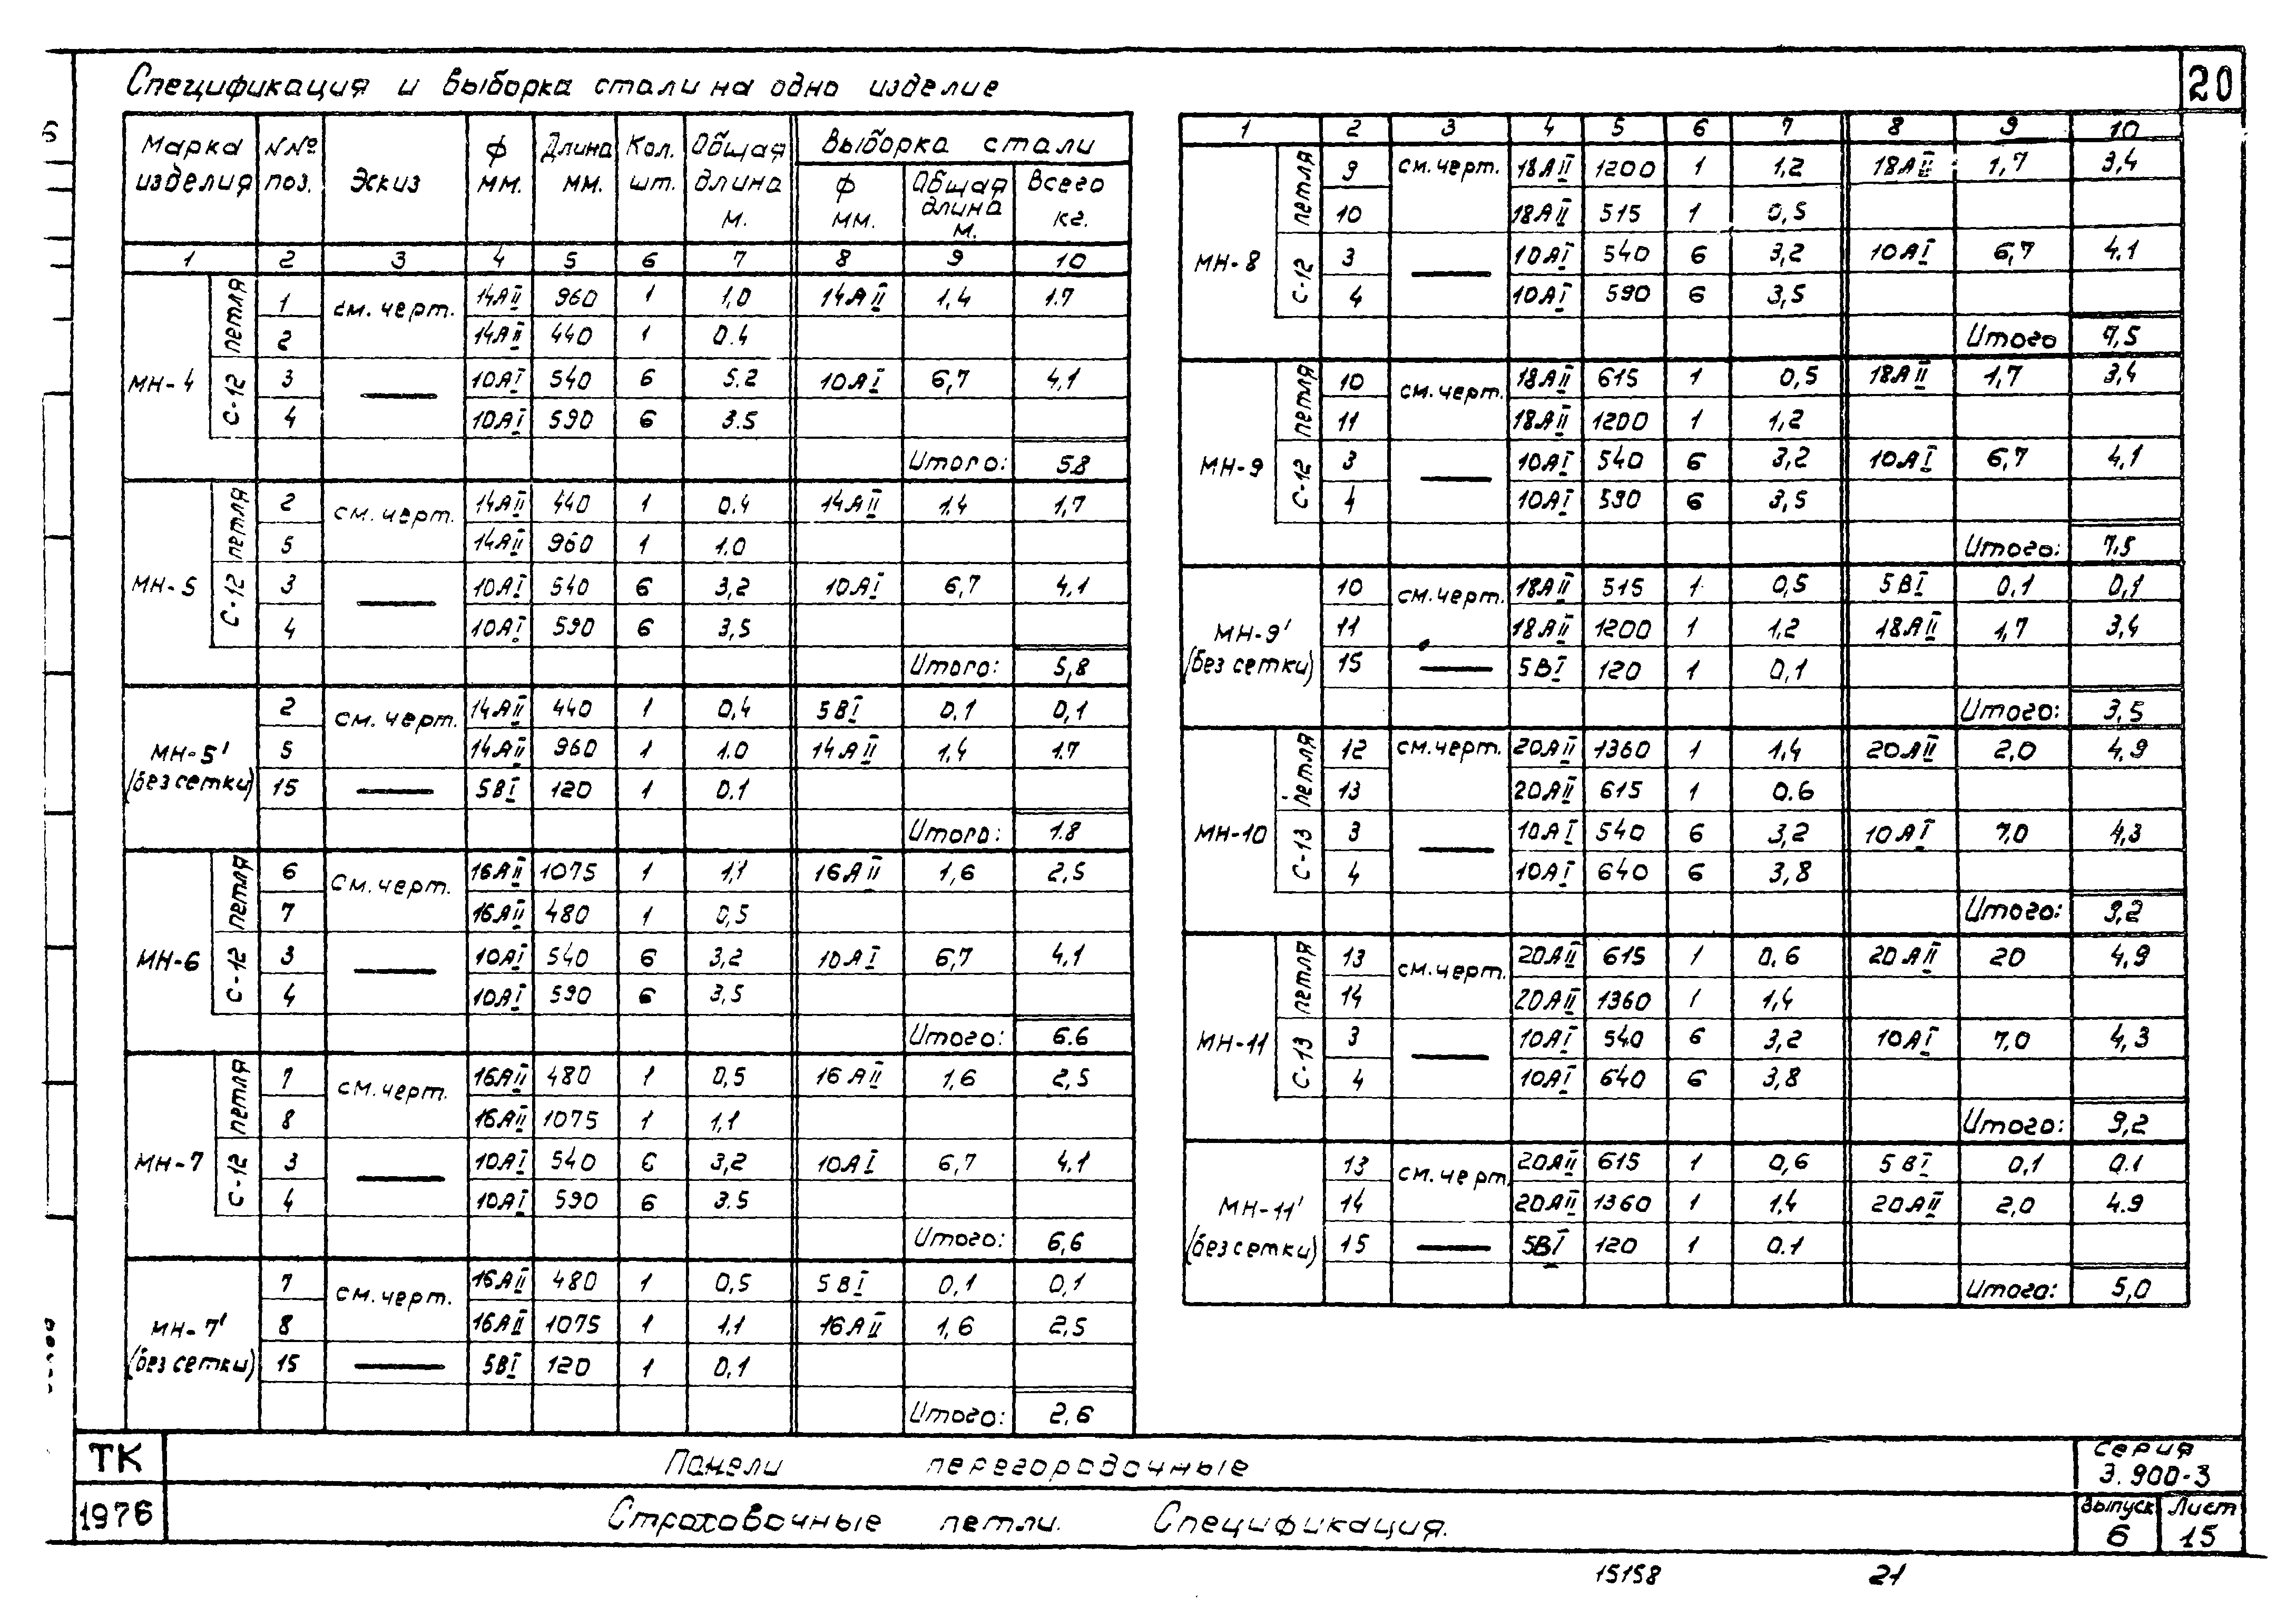 20
Спецификация и выборка стали на одно изделие
Марка изделия | N№ поз. | Эскиз | ф мм. | Длина мм. | Кол. шт. | Общая длина м. | Выборка стали
ф мм. | Общая длина м. | Всего кг.
1 | 2 | 3 | 4 | 5 | 6 | 7 | 8 | 9 | 10
МН-4 | петля | 1 | см. черт. | 14АII | 960 | 1 | 1,0 | 14АII | 1,4 | 1.7
2 | 14АII | 440 | 1 | 0.4
С-12 | 3 | 10АI | 540 | 6 | 5.2 | 10АI | 6,7 | 4,1
4 | 10АI | 590 | 6 | 3.5
Итого: | 5.8
МН-5 | петля | 2 | см. черт. | 14АII | 440 | 1 | 0.4 | 14АII | 1.4 | 1,7
5 | 14АII | 960 | 1 | 1.0
С-12 | 3 | 10АI | 540 | 6 | 3,2 | 10АI | 6,7 | 4,1
4 | 10АI | 590 | 6 | 3,5
Итого: | 5,8
МН-5' (без сетки) | 2 | см. черт. | 14АII | 440 | 1 | 0,4 | 5ВI | 0.1 | 0,1
5 | 14АII | 960 | 1 | 1.0 | 14АII | 1,4 | 1.7
15 | 5ВI | 120 | 1 | 0.1
Итого: | 1.8
МН-6 | петля | 6 | см. черт. | 16АII | 1075 | 1 | 1,1 | 16АII | 1,6 | 2,5
7 | 16АII | 480 | 1 | 0,5
С-12 | 3 | 10АI | 540 | 6 | 3,2 | 10АI | 6,7 | 4,1
4 | 10АI | 590 | 6 | 3,5
Итого: | 6.6
МН-7 | петля | 7 | см. черт. | 16АII | 480 | 1 | 0,5 | 16АII | 1,6 | 2,5
8 | 16АII | 1075 | 1 | 1,1
С-12 | 3 | 10АI | 540 | 6 | 3,2 | 10АI | 6,7 | 4.1
4 | 10АI | 590 | 6 | 3.5
Итого: | 6,6
МН-7' (без сетки) | 7 | см. черт. | 16АII | 480 | 1 | 0,5 | 5ВI | 0,1 | 0,1
8 | 16АII | 1075 | 1 | 1,1 | 16АII | 1,6 | 2,5
15 | 5ВI | 120 | 1 | 0,1
Итого: | 2,6
1 | 2 | 3 | 4 | 5 | 6 | 7 | 8 | 9 | 10
МН-8 | петля | 9 | см. черт. | 18АII | 1200 | 1 | 1,2 | 18АII | 1,7 | 3,4
10 | 18АII | 515 | 1 | 0,5
С-12 | 3 | 10АI | 540 | 6 | 3,2 | 10АI | 6,7 | 4.1
4 | 10АI | 590 | 6 | 3,5
Итого | 7,5
МН-9 | петля | 10 | см. черт. | 18АII | 615 | 1 | 0,5 | 18АII | 1,7 | 3,4
11 | 18АII | 1200 | 1 | 1,2
С-12 | 3 | 10АI | 540 | 6 | 3,2 | 10АI | 6,7 | 4,1
4 | 10АI | 590 | 6 | 3,5
Итого: | 7.5
МН-9' (без сетки) | 10 | см. черт. | 18АII | 515 | 1 | 0,5 | 5ВI | 0,1 | 0,1
11 | 18АII | 1200 | 1 | 1,2 | 18АII | 1,7 | 3,4
15 | 5ВI | 120 | 1 | 0,1
Итого: | 3,5
МН-10 | петля | 12 | см. черт. | 20АII | 1360 | 1 | 1,4 | 20АII | 2,0 | 4,9
13 | 20АII | 615 | 1 | 0.6
С-13 | 3 | 10АI | 540 | 6 | 3,2 | 10АI | 7,0 | 4,3
4 | 10АI | 640 | 6 | 3,8
Итого: | 9,2
МН-11 | петля | 13 | см. черт. | 20АII | 615 | 1 | 0,6 | 20АII | 20 | 4,9
14 | 20АII | 1360 | 1 | 1,4
С-13 | 3 | 10АI | 540 | 6 | 3,2 | 10АI | 7,0 | 4,3
4 | 10АI | 640 | 6 | 3,8
Итого: | 9,2
МН-11' (без сетки) | 13 | см. черт. | 20АII | 615 | 1 | 0,6 | 5ВI | 0,1 | 0.1
14 | 20АII | 1360 | 1 | 1,4 | 20АII | 2,0 | 4.9
15 | 5ВI | 120 | 1 | 0.1
Итого: | 5,0
ТК
1976
Панели перегородочные
Страховочные петли. Спецификация.
Серия 3.900-3
Выпуск 6
Лист 15
15158 21